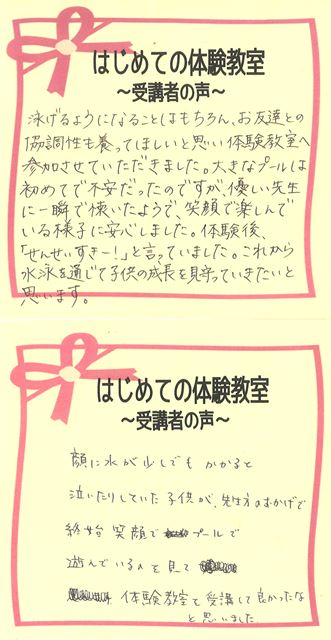 はじめての体験教室
～受講者の声～
泳げるようになることはもちろん、お友達との
協調性も養ってほしいと思い体験教室へ
参加させていただきました。大きなプールは
初めてで不安だったのですが、優しい先生
に一瞬で懐いたようで、笑顔で楽しんで
いる様子に安心しました。体験後、
「せんせいすきー!」と言っていました。これから
水泳を通じて子供の成長を見守っていきたいと
思います。
はじめての体験教室
～受講者の声～
顔に水が少しでもかかると
泣いたりしていた子供が、先生方のおかげで
終始笑顔でプールで
遊んでいるのを見て
体験教室を受講して良かったな
と思いました